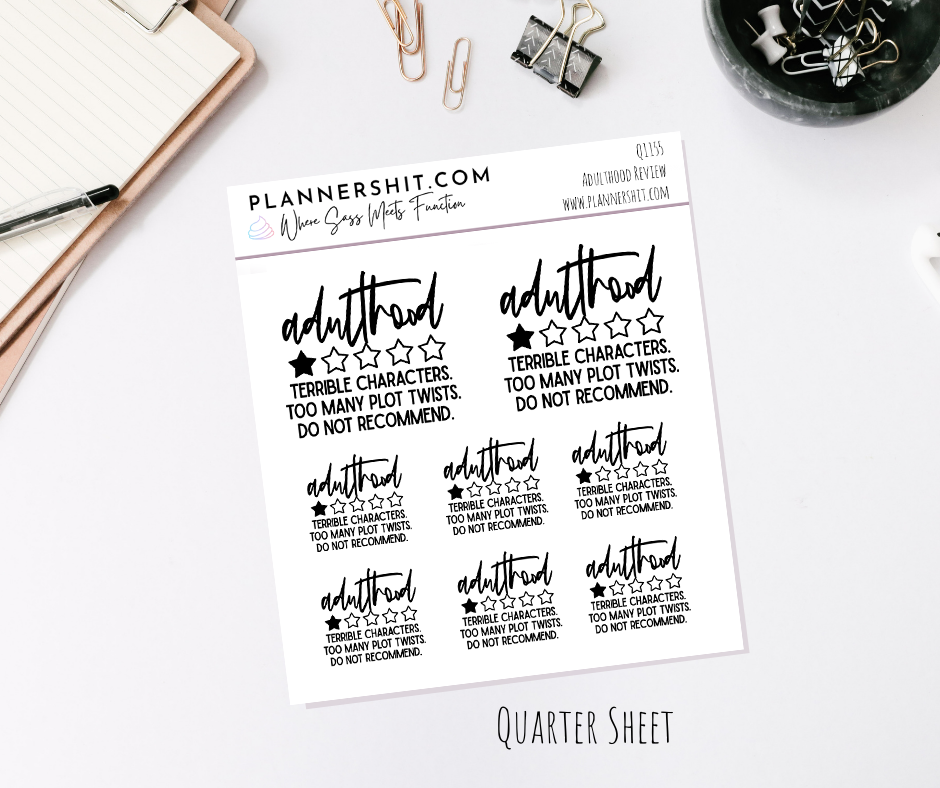 PLANNERSHIT.COM
Where Sass Meets Function
Q1155
Adulthood Review
www.plannershit.com
adulthood
TERRIBLE CHARACTERS.
TOO MANY PLOT TWISTS.
DO NOT RECOMMEND.
adulthood
TERRIBLE CHARACTERS.
TOO MANY PLOT TWISTS.
DO NOT RECOMMEND.
adulthood
TERRIBLE CHARACTERS.
TOO MANY PLOT TWISTS.
DO NOT RECOMMEND.
adulthood
TERRIBLE CHARACTERS.
TOO MANY PLOT TWISTS.
DO NOT RECOMMEND.
adulthood
TERRIBLE CHARACTERS.
TOO MANY PLOT TWISTS.
DO NOT RECOMMEND.
adulthood
TERRIBLE CHARACTERS.
TOO MANY PLOT TWISTS.
DO NOT RECOMMEND.
adulthood
TERRIBLE CHARACTERS.
TOO MANY PLOT TWISTS.
DO NOT RECOMMEND.
adulthood
TERRIBLE CHARACTERS.
TOO MANY PLOT TWISTS.
DO NOT RECOMMEND.
Quarter Sheet